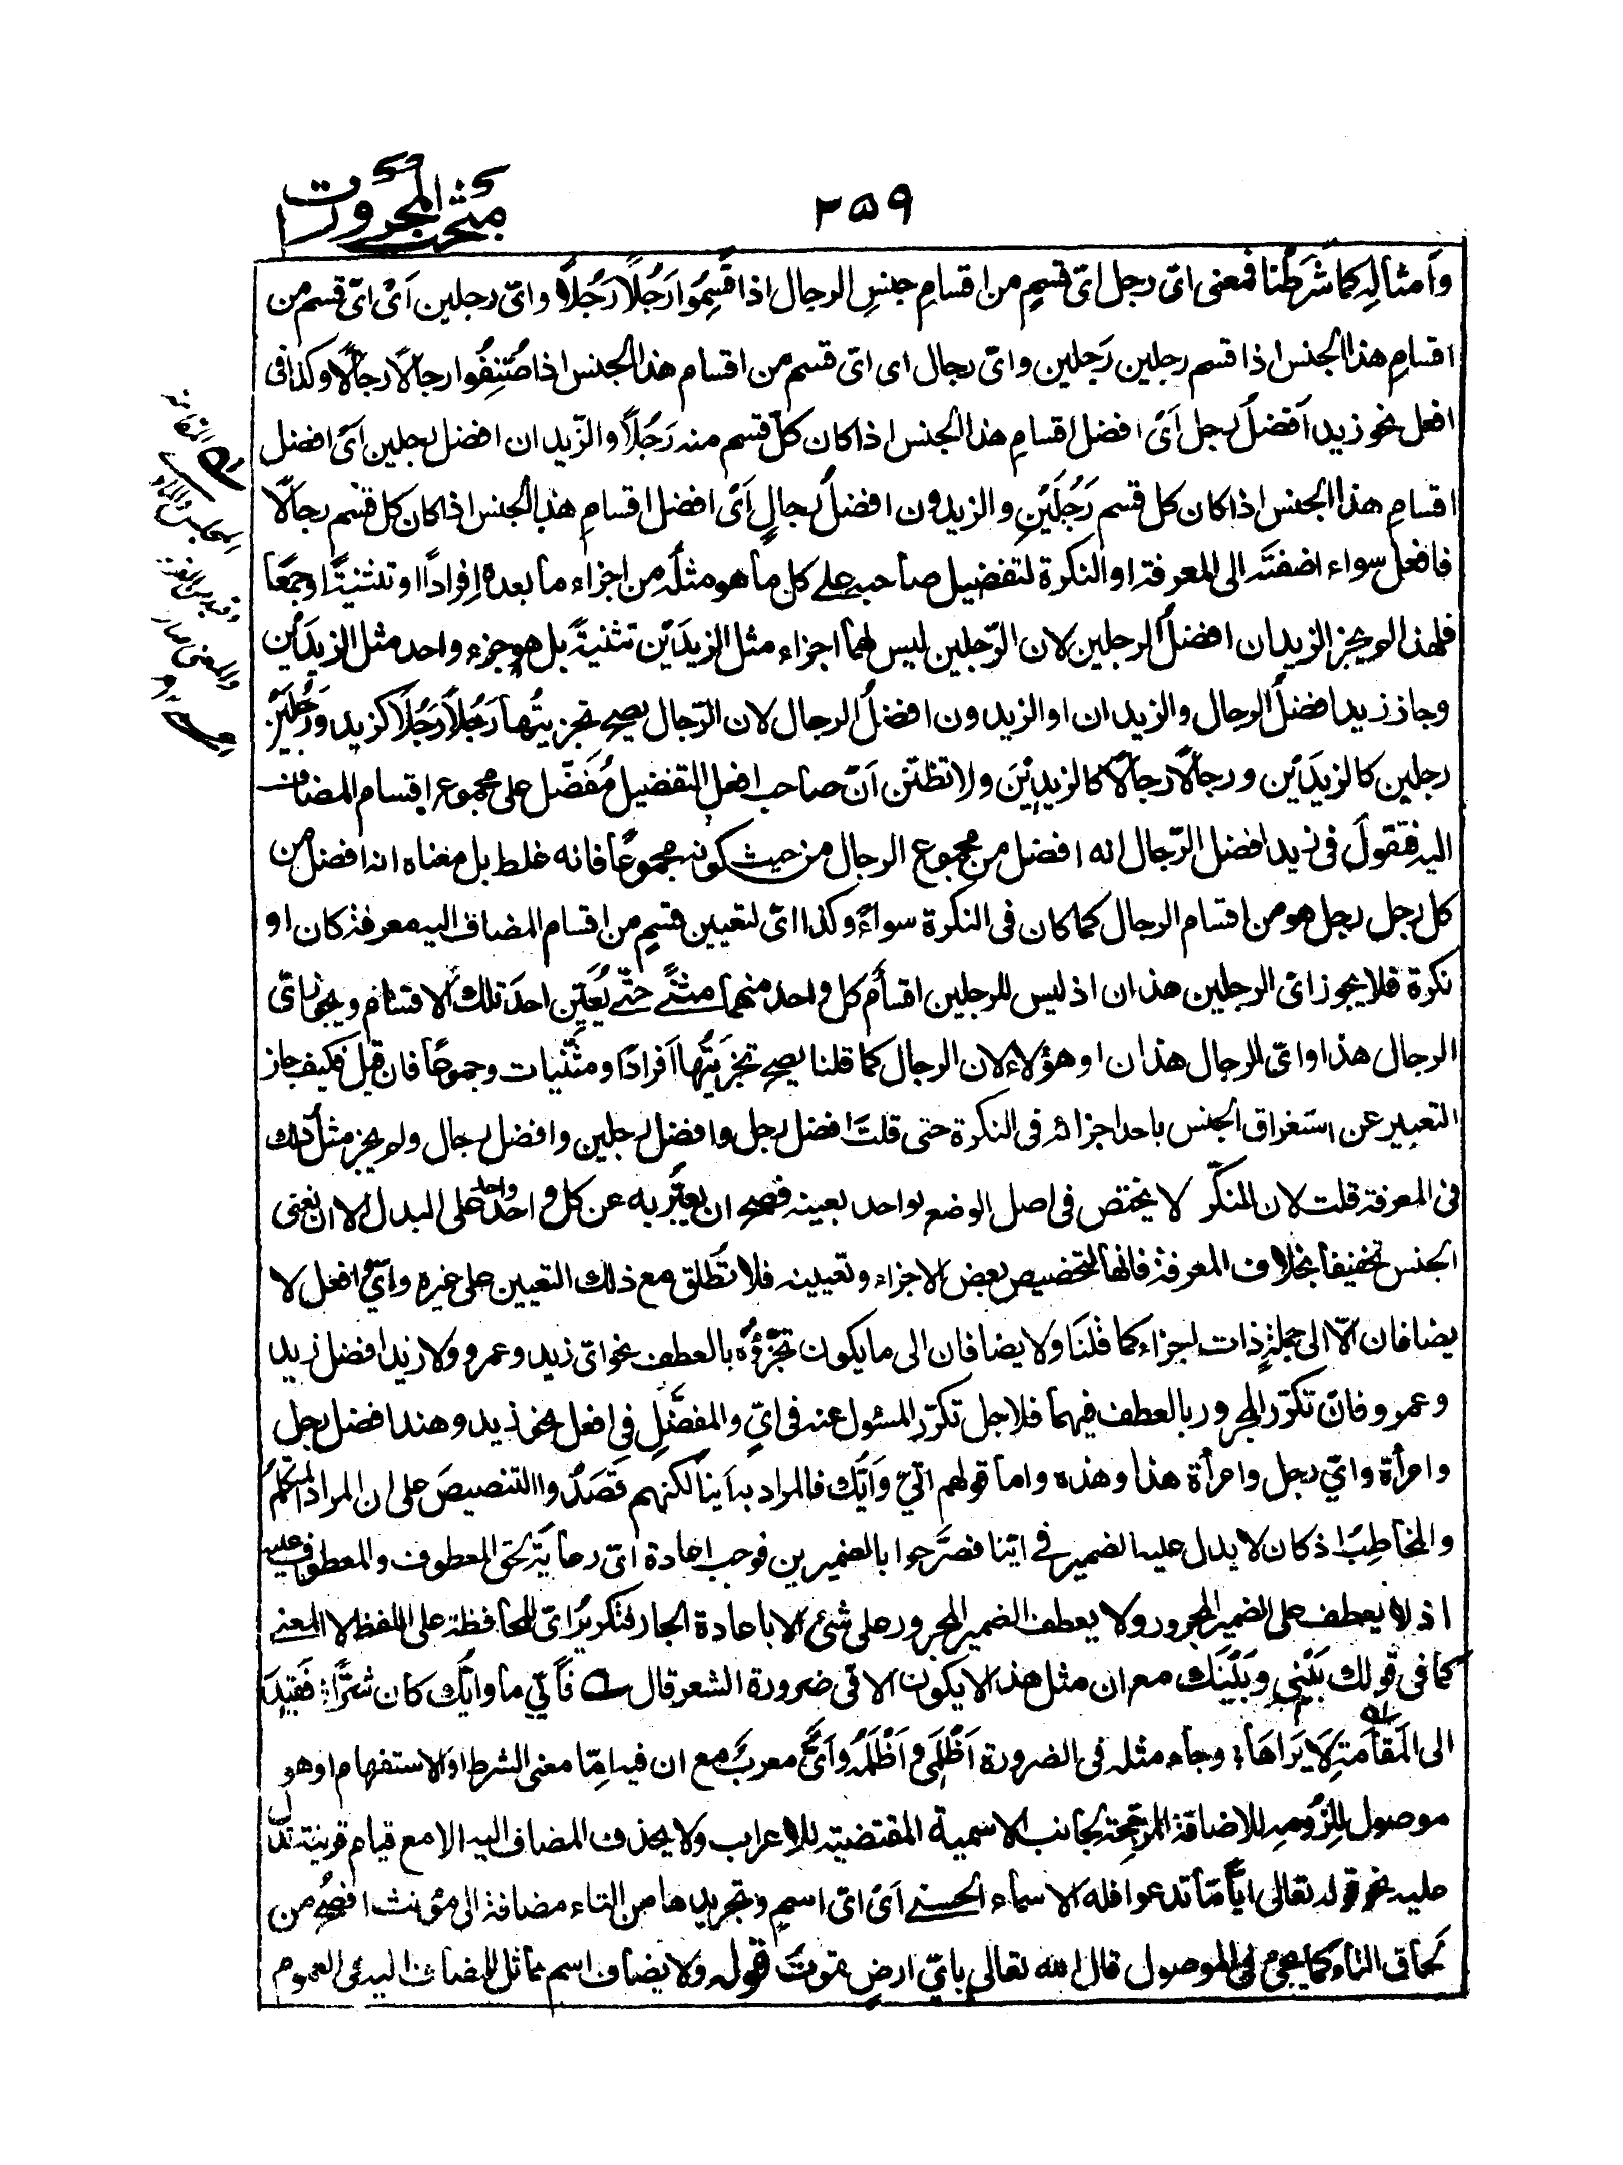 ۲۵۹
مبحث المجرورات
وأمثاله كما شرطنا فمعنى اىّ رجل اىّ قسمٍ من اقسامِ جنسِ الرجال اذا قُسِمُوا رَجُلًا رَجُلًا واىّ رجلين اَىْ اىّ قسم من
اقسامِ هذا الجنس اذا قسم رجلين رَجلين واىّ رجال اى اىّ قسم من اقسام هذا الجنس اذا صُنِّفُوا رجالًا رجالًا وكذا فى
افعل نحو زيد اَفضلُ رجل اَىْ افضل اقسامِ هذا الجنس اذا كان كلّ قسم منه رَجُلًا والزّيدان افضل رجلين اَىْ افضل
اقسامِ هذا الجنس اذا كان كل قسم رَجُلَيْنِ والزيدون افضلُ رجالٍ اَىْ افضل اقسامِ هذا الجنس اذا كان كل قسم رجالًا
فافعل سواء اضفتَه الى المعرفة او النكرة لتفضيل صاحبه على كل ما هو مثلُه من اجزاء ما بعده اِفرادًا وتثنيتًا وجمعًا
فلهذا لم يجز الزيدان افضلُ الرجلين لان الرّجلين ليس لهما اجزاء مثل الزيدَيْن تثنيةً بل هو جزء واحد مثل الزيدَيْن
وجاز زيد افضلُ الرجال والزيدان او الزيدون افضلُ الرجال لان الرّجال يصح تجزيتُها رَجُلًا رَجُلًا كزيد ورَجُلَيْنِ
رجلين كالزيدَيْن ورجالًا رجالًا كالزيدِيْنَ ولا تظنّن اَنّ صاحب افعل التفضيل مُفَضّل على مجموع اقسام المضاف
اليه فتقولَ فى زيد افضل الرّجال انه افضل من مجموع الرجال من حيث كونه مجموعًا فانه غلط بل معناه انه افضل من
كل رجل رجل هو من اقسام الرجال كما كان فى النكرة سواءً وكذا اىّ لتعيين قسمٍ من اقسام المضاف اليه معرفة كان او
نكرة فلا يجوز اىّ الرجلين هذان اذ ليس للرجلين اقسامٌ كل واحد منهما مثنًّى حتّى يُعيّن احدَ تلك الاقسام ويجوز اىّ
الرجال هذا واىّ الرجال هذان او هؤلاء لان الرجال كما قلنا يصح تجزيتُها اَفرادًا ومثنّيات وجموعًا فان قيل فكيف جاز
التعبير عن استغراق الجنس باحد اجزائه فى النكرة حتى قلتَ افضل رجل وافضل رجلين وافضل رجال ولم يجز مثل ذلك
فى المعرفة قلت لان المنكّر لا يختص فى اصل الوضع لواحد بعينه فصح ان يعبَّر به عن كل واحد واحد على البدل الا ان نعنى
الجنس تخفيفًا بخلاف المعرفة فانها لتخصيص بعض الاجزاء وتعيينه فلا تُطلق مع ذلك التعيين على غيره واىّ وافعل لا
يضافان الّا الى جملةٍ ذات اجزاء كما قلنَا ولا يضافان الى ما يكون تجزّؤه بالعطف نحو اىّ زيد وعمرو ولا زيد افضل زيد
وعمرو فان تكرّر المجرور بالعطف فيهما فلاجل تكرّر المسئول عنه فى اىٍّ والمفضَّلِ فى افعل نحو زيد وهند افضل رجل
وامرأة واىّ رجل وامرأة هذا وهذه واما قولهم اَيِّىْ وَاَيُّك فالمراد به اَينا لكنهم قَصَدُوا التنصيصَ على ان المراد المتكلمُ
والمخاطبُ اذ كان لا يدل عليه الضمير فى اينا فصَرّحوا بالضميرين فوجب اعادة اىّ رعايةً لحق المعطوف والمعطوف عليه
اذ لا يعطف على الضمير المجرور ولا يعطف الضمير المجرور على شئ الا باعادة الجار فتكريرُ اىّ للمحافظة على اللفظ لا المعنى
كما فى قولك بَيْنِى وبَيْنَك مع ان مثل هذا لا يكون الا فى ضرورة الشعر قال فَاَيِّى ما واَيُّك كان شرًّا؛ فقِيدَ
الى المَقَامةِ لَا يَرَاهَا؛ وجاء مثله فى الضرورة اَظْلَمِى واَظْلَمُه واَىٌّ معربٌ مع ان فيه اِمّا معنى الشرط او الاستفهام او هو
موصول لِلزُومِه للاضافة المرجّحة لجانب الاسمية المقتضيته للاعراب ولا يحذف المضاف اليه الا مع قيام قرينة تدل
عليه نحو قوله تعالى اَيًّا مّا تدعوا فله الاسماء الحسنى اَىْ اىّ اسمٍ وتجريدها من التاء مضافة الى مؤنث افصحُ من
لحاق التاء كما يجئ فى الموصول قال الله تعالى باىّ ارضٍ تموتُ قوله ولا يضاف اسم مماثل للمضاف اليه فى العموم